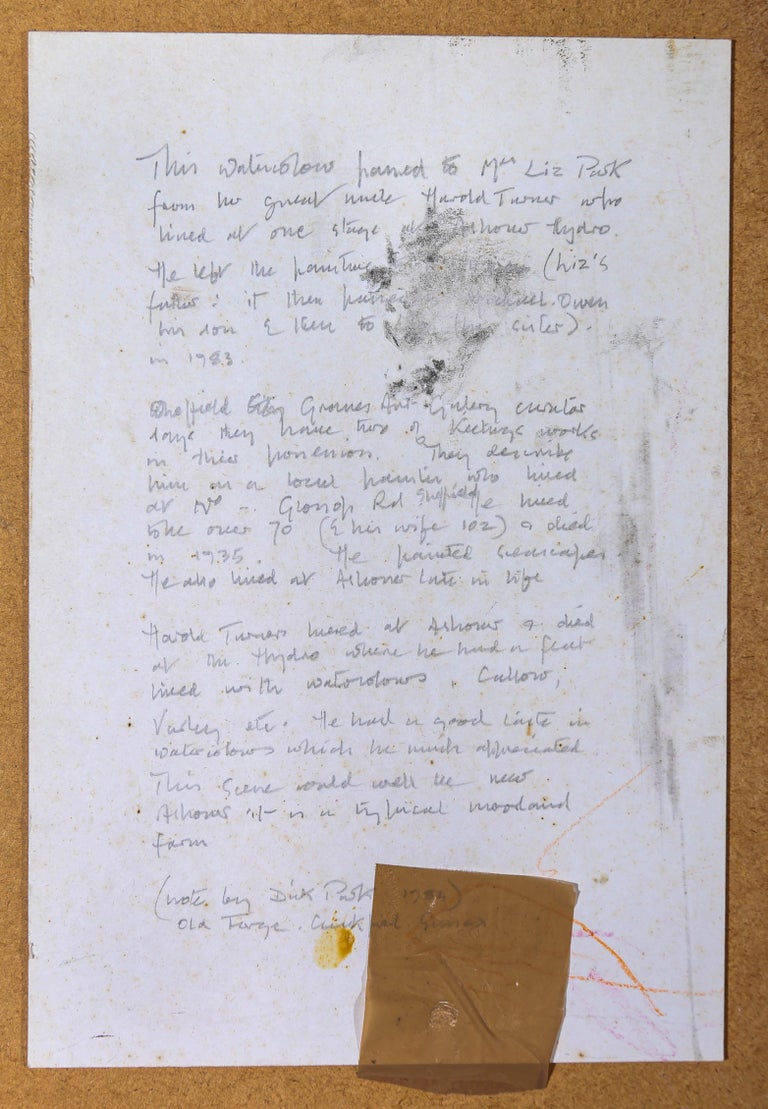 This watercolour passed to Mrs Liz Park
from her great uncle. Harold Turner who
lived at one stage at Ashover Hydro.
He left the painting (Liz's
father: it then passed Owen
his son & then to sister).
in 1983.
Sheffield City Graves Art Gallery curator
says they have two of works
in their possession. They describe
him as a local painter who lived
at No - Glossop Rd Sheffield He lived
to be over 70 (& his wife 102) & died
in 1935. He painted seascapes.
He also lived at Ashover late in life
Harold Turner lived at Ashover & died
at the Hydro where he had a flat
lined with watercolours. Callow,
Varley etc. He had a good taste in
watercolours which he much appreciated
This scene could well be near
Ashover it is a typical moorland
farm
(note by Dick Park 1984)
Old Forge. Sussex